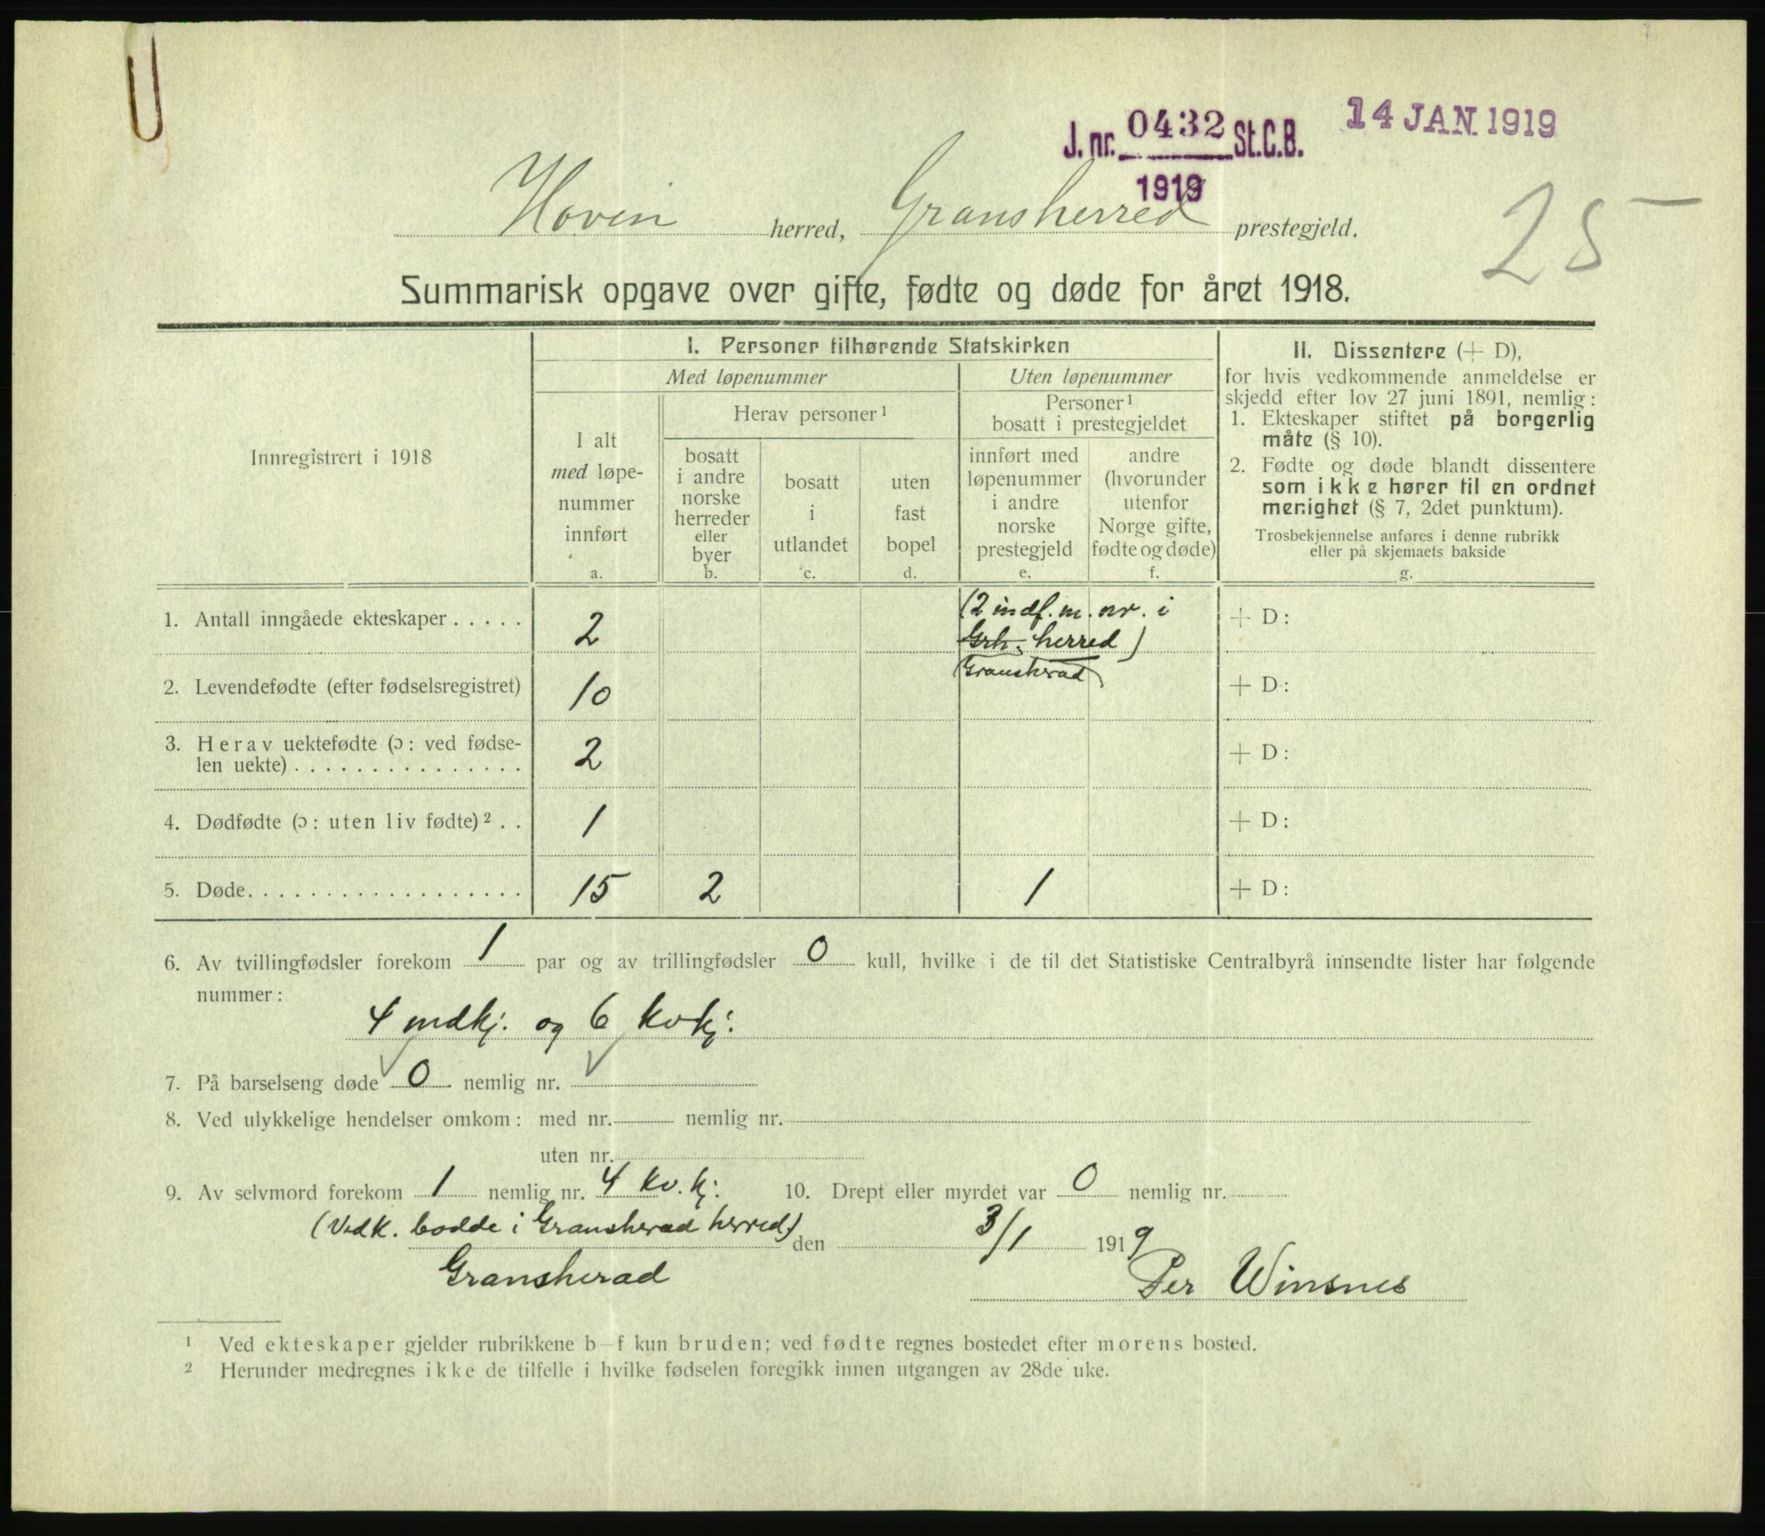 J. nr. 0432 St.C.B.
1919
14 JAN. 1919
25
Hovin herred, Gransherred prestegjeld.
Summarisk opgave over gifte, fødte og døde for året 1918.
Innregistrert i 1918
I. Personer tilhørende Statskirken
Med løpenummer
Uten løpenummer
I alt
med løpe-
nummer
innført
a.
Herav personer ¹
bosatt
i andre
norske
herreder
eller
byer
b.
bosatt
i
utlandet
c.
uten
fast
bopel
d.
Personer ¹
bosatt i prestegjeldet
innført med
løpenummer
i andre
norske
prestegjeld
e.
andre
(hvorunder
utenfor
Norge gifte,
fødte og døde)
f.
II. Dissentere (+ D),
for hvis vedkommende anmeldelse er
skjedd efter lov 27 juni 1891, nemlig:
1. Ekteskaper stiftet på borgerlig
måte (§ 10).
2. Fødte og døde blandt dissentere
som ikke hører til en ordnet
menighet (§ 7, 2det punktum).
Trosbekjennelse anføres i denne rubrikk
eller på skjemaets bakside
g.
1. Antall inngåede ekteskaper . . . . . 2 (2 indf. m. nr. i + D:
Grh. herred)
(Gransherad)
2. Levendefødte (efter fødselsregistret) 10 + D:
3. Herav uektefødte (ɔ: ved fødse-
len uekte) . . . . . . . . . . . . . . . 2 + D:
4. Dødfødte (ɔ: uten liv fødte) ² . . 1 + D:
5. Døde. . . . . . . . . . . . . . . . . . 15 2 1 + D:
6. Av tvillingfødsler forekom 1 par og av trillingfødsler 0 kull, hvilke i de til det Statistiske Centralbyrå innsendte lister har følgende
nummer:
4 mdkj. og 6 kvkj.
7. På barselseng døde 0 nemlig nr.
8. Ved ulykkelige hendelser omkom: med nr. nemlig nr.
uten nr.
9. Av selvmord forekom 1 nemlig nr. 4 kv. kj. 10. Drept eller myrdet var 0 nemlig nr.
(Vedk. bodde i Gransherad herred) den 3/1 1919
Gransherad
Per Winsnes
¹ Ved ekteskaper gjelder rubrikkene b—f kun bruden; ved fødte regnes bostedet efter morens bosted.
² Herunder medregnes ikke de tilfelle i hvilke fødselen foregikk innen utgangen av 28de uke.